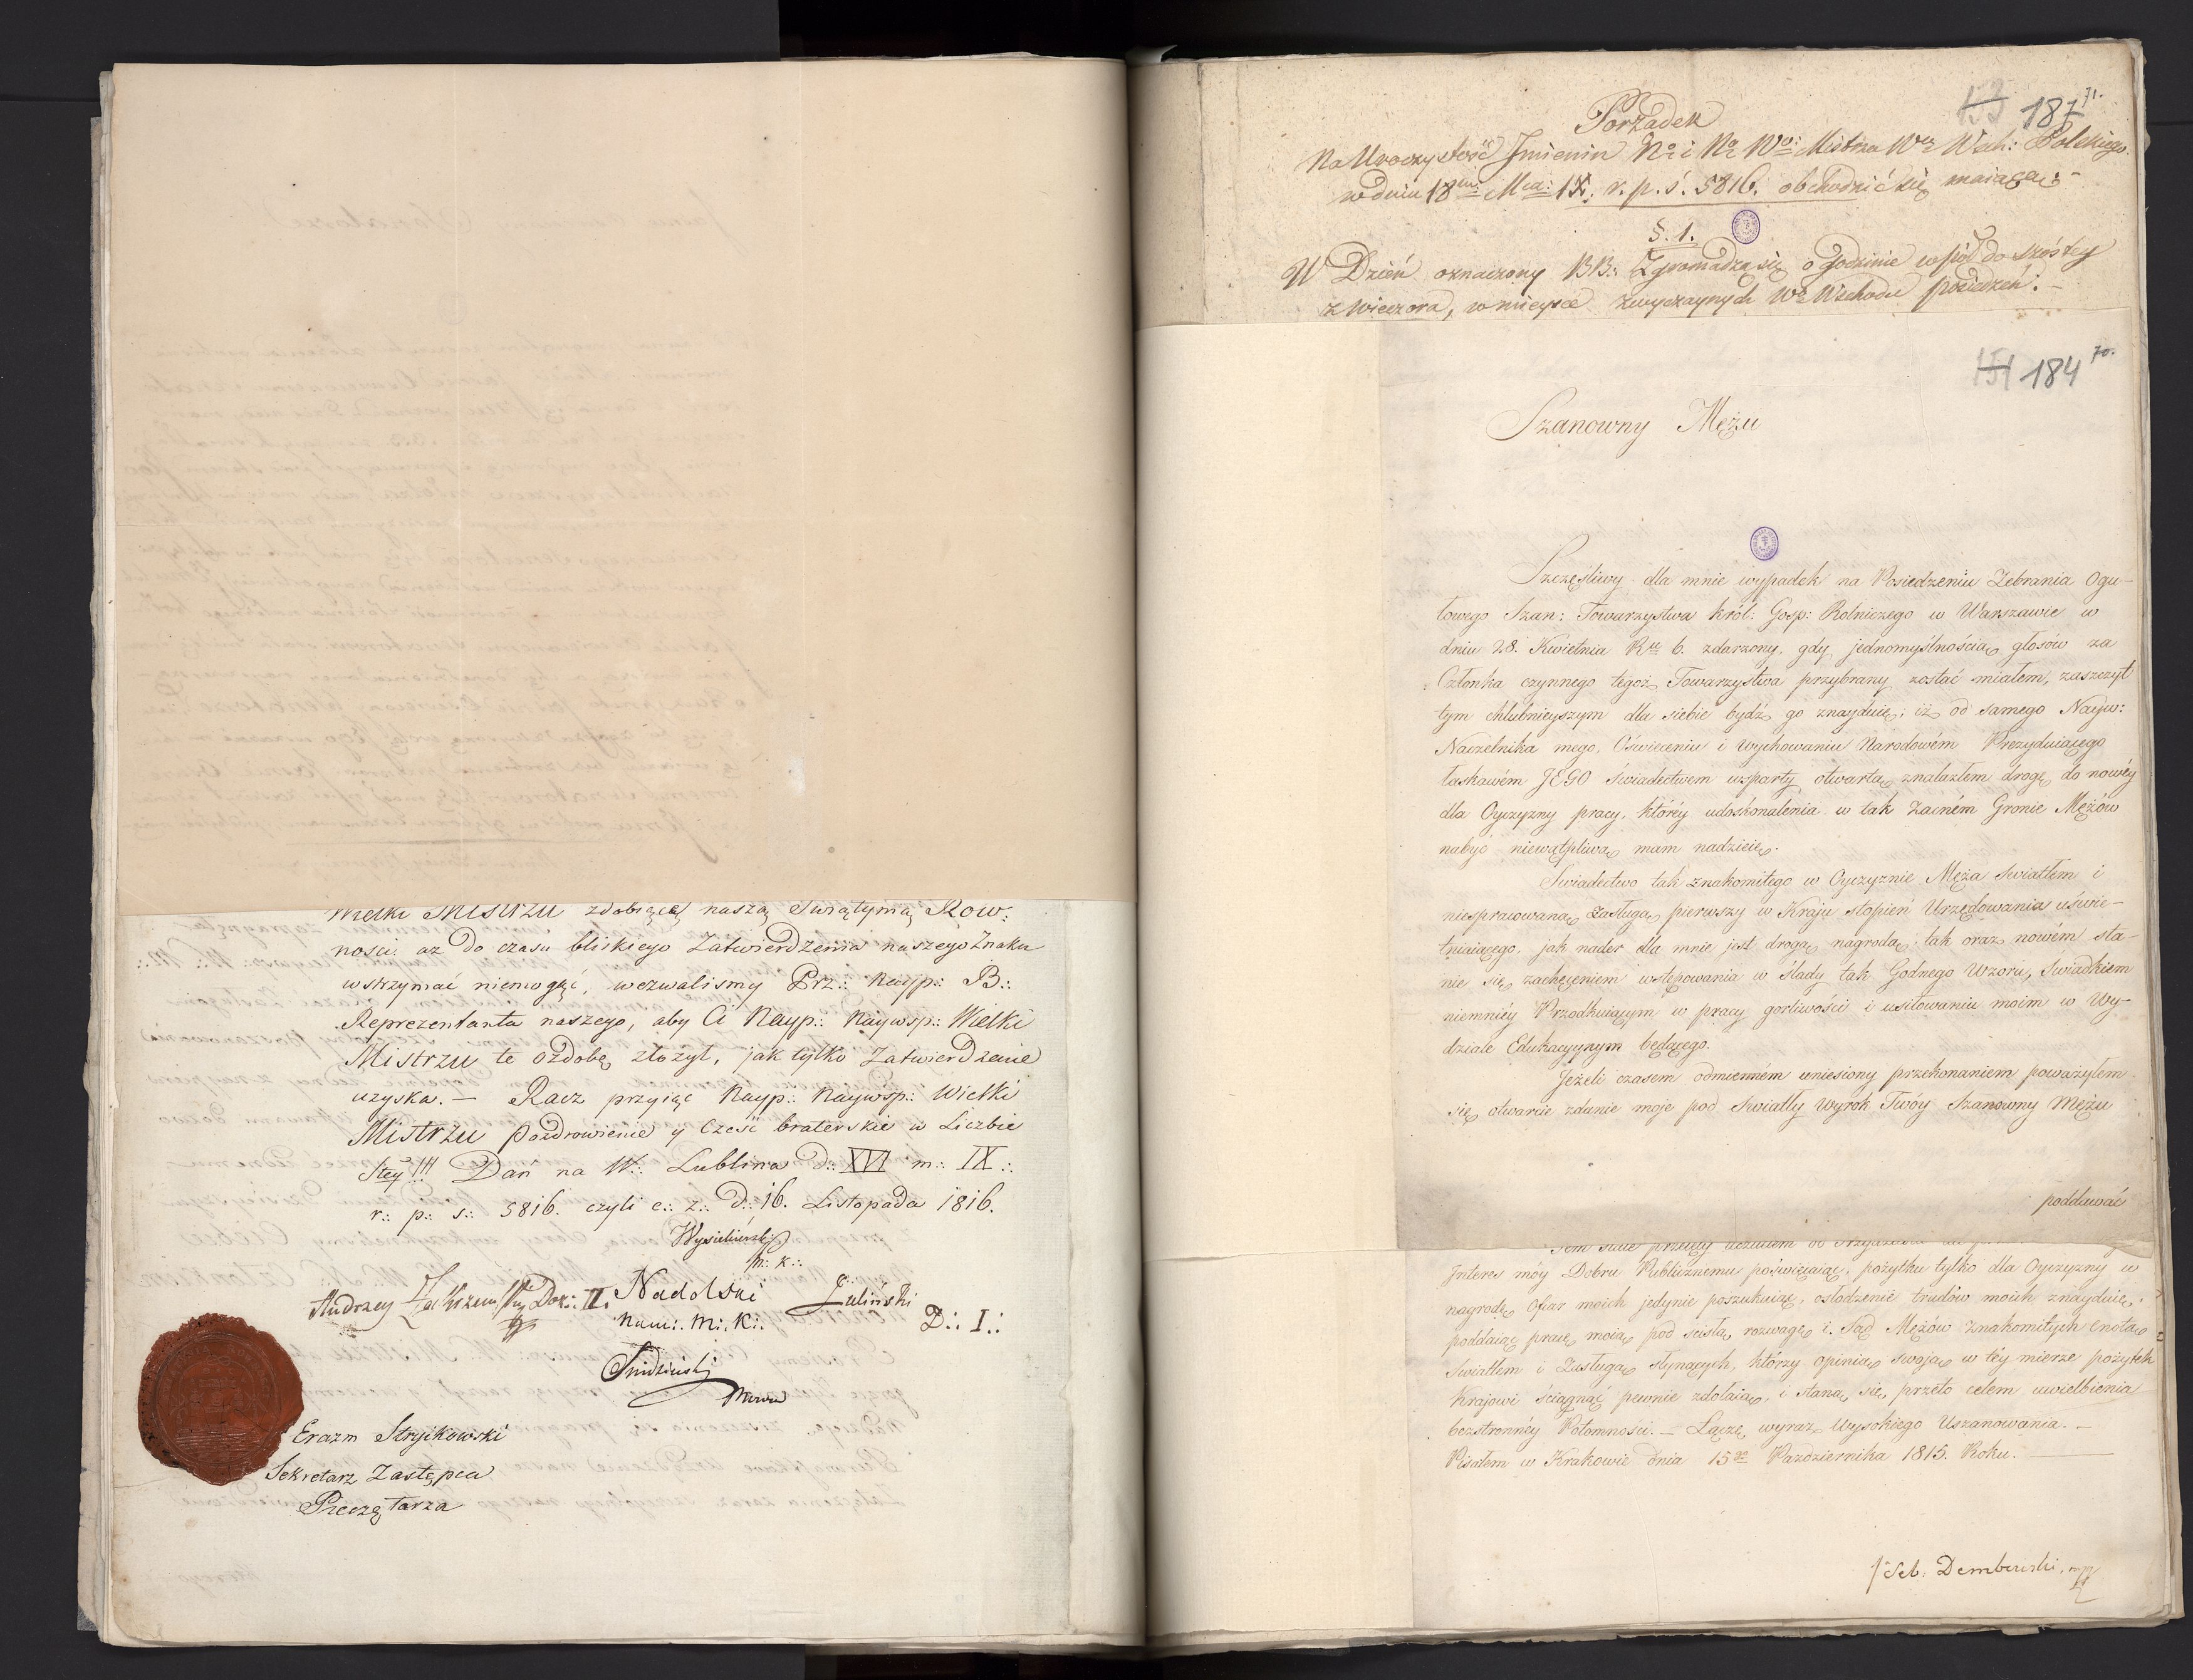 Wielki Mistrzu zdobiącej naszą Swiątynią Row:
ności aż do czasu bliskiego Zatwierdzenia naszego Znaku
wstrzymać niemogąc, wezwalismy Prz:. Nayp:. B:.
Reprezentanta naszego, aby Ci Nayp:. Naywsp:. Wielki
Mistrzu te ozdobę złożył, jak tylko Zatwierdzenie
uzyska. — Racz przyiąc Nayp:. Naywsp:. Wielki
Mistrzu pozdrowienie y Cześć braterskie w Liczbie
3tey !!! Dan na W:. Lublina D:. XVI m:. IX:.
r:. p:. s:. 5816. czyli e:. z:. D:. 16. Listopada 1816.
m:. k:.
Andrzey II:. Nadolski Juliński
Nam:. M:. K:. D:. I:.
Erazm Stryikowski
Sekretarz Zastępca
Pieczętarza
Porządek
153 187 71.
Na Uroczystość Jmienin No i No Wo: Mistrza Wo Wsch: Polskiego
w dniu 18 Mca: IX: r. p. ś. 5816. obchodzić się maiącą:
§. 1.
W Dzień oznaczony BB:. Zgromadzą się o godzinie wpół do szóstey
z Wieczora, w mieysce zwyczaynych Wo Wschodu posiedzeń. —
151 184 70.
Szanowny Mężu
Szczęśliwy dla mnie wypadek na Posiedzeniu Zebrania Ogu-
łowego Szan: Towarzystwa król: Gosp: Rolniczego w Warszawie w
dniu 28. Kwietnia R. b. zdarzony, gdy jednomyślnością głosów za
Członka czynnego tegoż Towarzystwa przybrany zostać miałem, zaszczyt
tym chlubnieyszym dla siebie bydź go znayduię; iż od samego Nayw:
Naczelnika mego, Oświeceniu i Wychowaniu Narodowém Prezyduiącego
łaskawém JEGO świadectwem wsparty otwartą znalazłem drogę do nowéy
dla Oyczyzny pracy, któréy udoskonalenia w tak Zacném Gronie Mężów
nabyć niewątpliwą mam nadzieię.
Swiadectwo tak znakomitego w Oyczyznie Męża światłem i
niespracowaną zasługą pierwszy w Kraju stopień Urzędowania uświe-
tniaiącego, jak nader dla mnie jest drogą nagrodą; tak oraz nowém sta-
nie się zachęceniem wstępowania w ślady tak Godnego Wzoru, Swiadkiem
niemniéy Przodkuiącym w pracy gorliwości i usiłowaniu moim w Wy-
dziale Edukacyynym będącego.
Jeżeli czasem odmienném uniesiony przekonaniem poważyłem
się otwarcie zdanie moje pod Swiatły Wyrok Twóy Szanowny Mężu
poddawać
Interes móy Dobru Publicznemu poświęcaiąc, pożytku tylko dla Oyczyzny w
nagrodę ofiar moich jedynie poszukuiąc, osłodzenie trudów moich znayduię,
poddaiąc pracę moią pod scisłą rozwagę i Sąd Mężów znakomitych cnotą
Swiatłem i Zasługą słynących, którzy opinią swoją w téy mierze pożytek
Krajowi ściągnąć pewnie zdołaią, i staną się przeto celem uwielbienia
bezstronnéy Potomności. — Łączę wyraz Wysokiego Uszanowania. —
Pisałem w Krakowie dnia 15go Pazdziernika 1815. Roku. —
Seb: Dembowski, mp